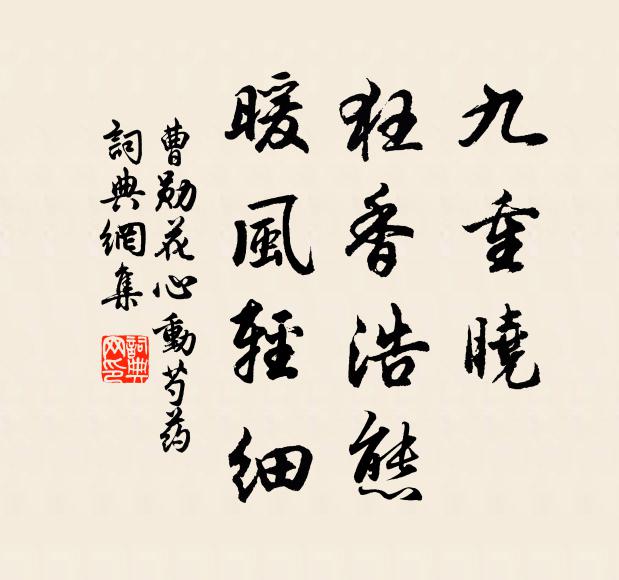 九重曉
狂香浩態
暖風輕細
曹勛花心動芍药
詞典網集
詞典
网印